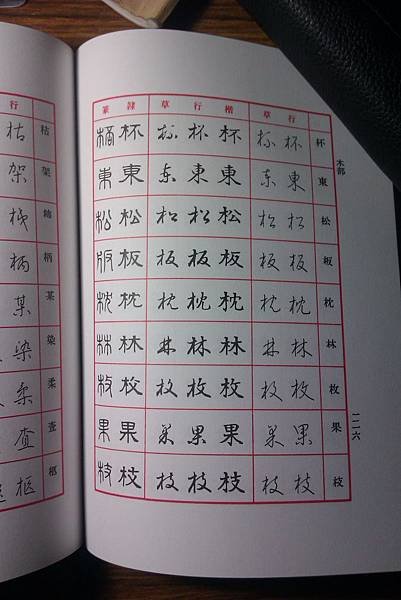 行
枯 枯
架 架
柄 柄
某 某
染 染
柔 柔
查 查
篆 隸 草 行 楷 草 行
桮 杯 杯 杯 杯 杯 杯 杯
東 東 东 東 東 东 東 東
松 松 松 松 松 松 松 松
版 板 板 板 板 板 板 板
枕 枕 枕 枕 枕 枕 枕 枕
林 林 林 林 林 林 林 林
枚 枚 枚 枚 枚 枚 枚 枚
果 果 果 果 果 果 果 果
枝 枝 枝 枝 枝 枝 枝 枝
木部
一二六